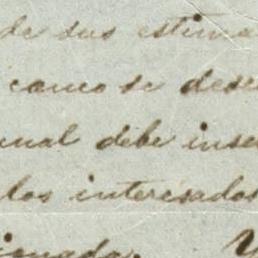 de sus estima
canco se dese
unal debe inse
los interesados
ionada.